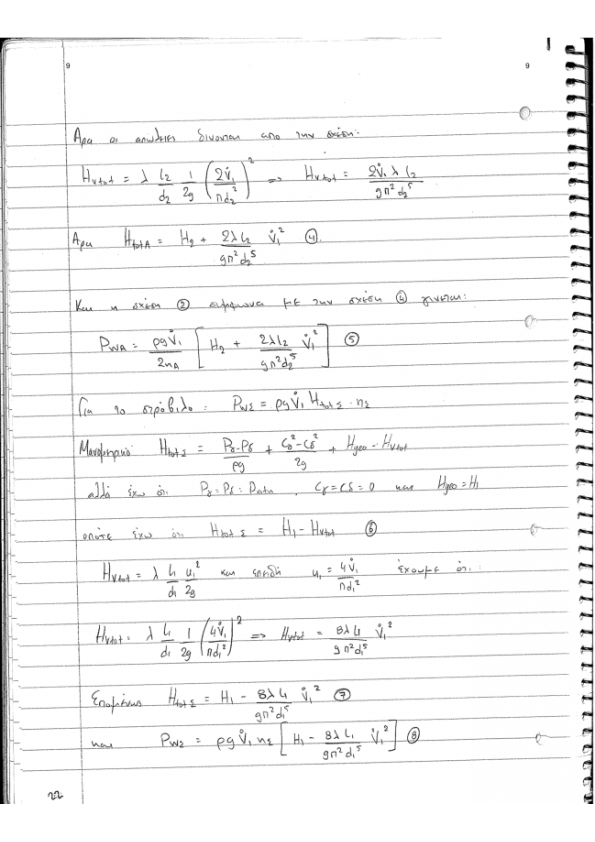 9 9
Αρα οι απωλειες δινονται απο την σχέση:
H_Vtot = λ L₂/d₂ 1/2g (2V̇₁/πd₂²)² => H_Vtot = 2V̇₁ λ L₂/gπ²d₂⁵
Αρα H_totA = H₂ + 2λL₂/gπ²d₂⁵ V̇₁² ④
Και η σχέση ② συμφωνα με την σχέση ④ γινεται:
P_WA = ρgV̇₁/2n_A [H₂ + 2λL₂/gπ²d₂⁵ V̇₁²] ⑤
Για το στρόβιλο: P_WΣ = ρgV̇₁ H_totΣ · n_Σ
Μανομετρικό H_totΣ = P_γ-P_δ/ρg + C_γ²-C_δ²/2g + H_geo - H_Vtot
αλλά έχω ότι P_γ = P_δ = Patm , C_γ = C_δ = 0 και H_geo = H₁
οπότε έχω ότι H_totΣ = H₁ - H_Vtot ⑥
H_Vtot = λ L₁/d₁ u₁²/2g και επειδή u₁ = 4V̇₁/πd₁² έχουμε ότι:
H_Vtot = λ L₁/d₁ 1/2g (4V̇₁/πd₁²)² => H_Vtot = 8λL₁/gπ²d₁⁵ V̇₁²
Επομένως H_totΣ = H₁ - 8λL₁/gπ²d₁⁵ V̇₁² ⑦
και P_WΣ = ρgV̇₁ n_Σ [H₁ - 8λL₁/gπ²d₁⁵ V̇₁²] ⑧
22